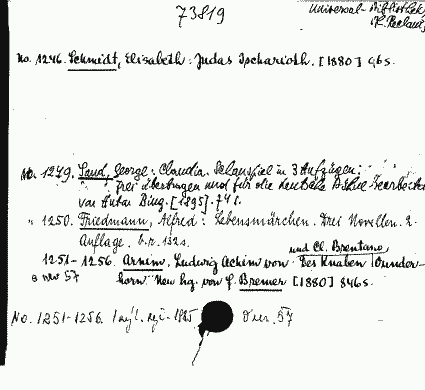 73819
Universal-Bibliothek
(P. Reclam)
No. 1246. Schmidt, Elisabeth: Judas Ischarioth. [1880] 96 s.
No. 1249. Sand, George: Claudia. Schauspiel in 3 Aufzügen;
frei übertragen und für die deutsche Bühne bearbeitet
von Anton Bing. [1895]. 74 s.
" 1250. Friedmann, Alfred: Lebensmärchen. Drei Novellen. 2.
Auflage. 132 s.
und Cl. Brentano
1251-1256. Arnim, Ludwig Achim von Des Knaben Wunder-
horn. Neu hg. von F. Bremer [1880] 846 s.
57
No. 1251-1256. 1 1895 57